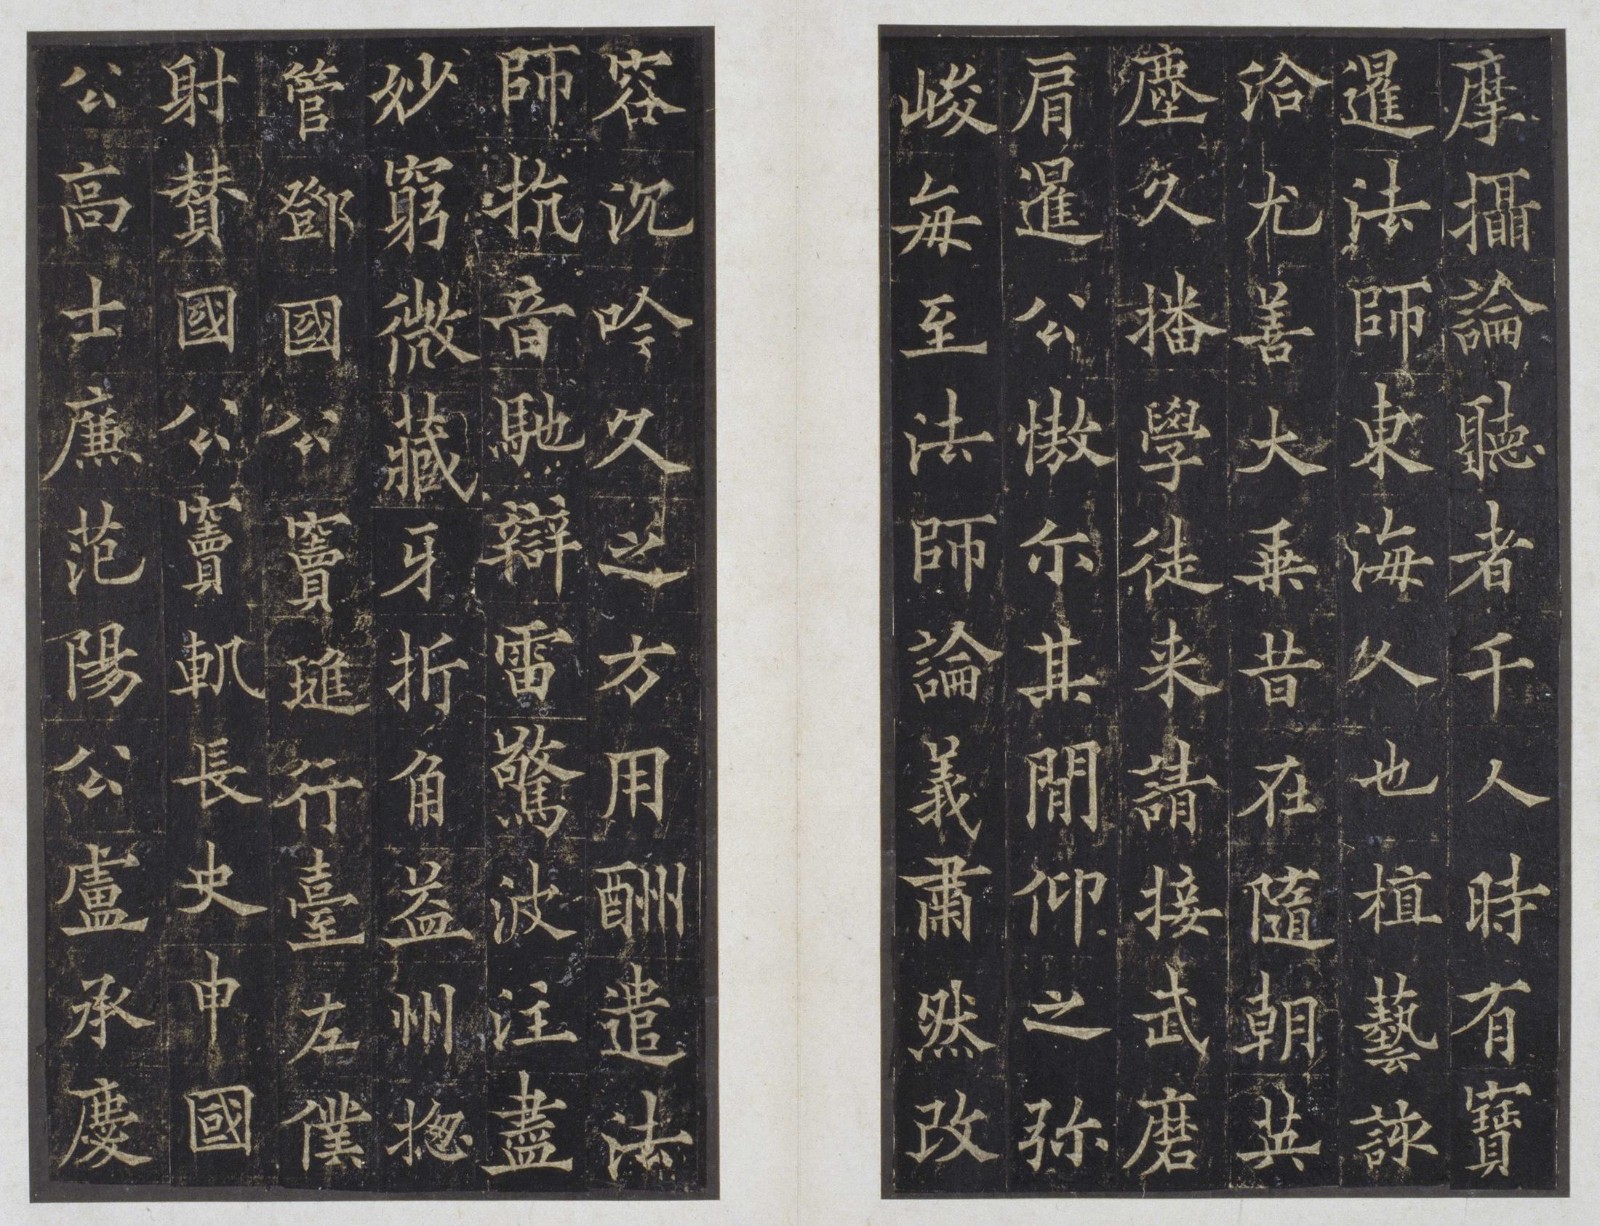 摩攝論聽者千人時有寶
暹法師東海久也植藝詠
洽尤善大乗昔在隨朝英
塵久播學徒来請接武磨
肩暹公傲尓其閒仰之弥
峻每至法師論義肅然改
容沉吟久之方用酬遣法
師抗音馳辯雷驚波注盡
妙窮微藏牙折角益州揔
管酇國公竇璡行臺左僕
射賛國公竇軌長史申國
公高士廉范陽公盧承慶